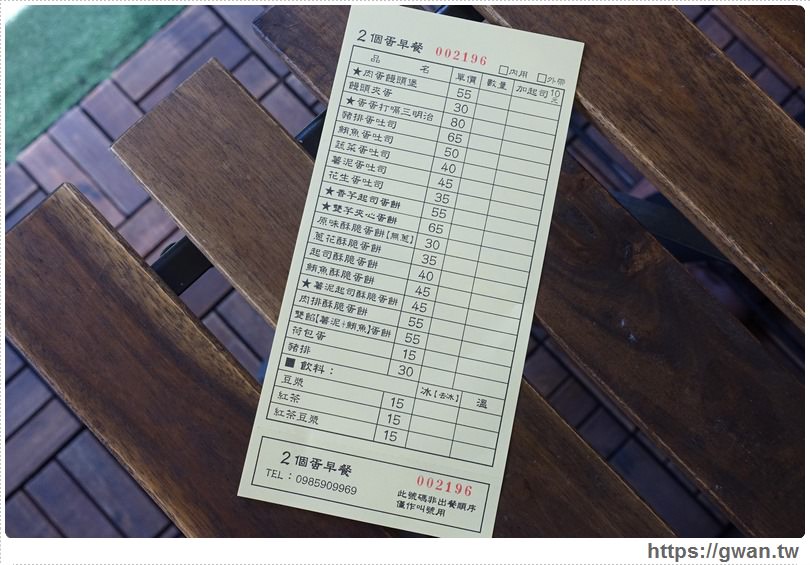 2個蛋早餐 002196 □內用 □外帶
品 名 單價 數量 加起司10元
★肉蛋饅頭堡 55
饅頭夾蛋 30
★蛋蛋打嗝三明治 80
豬排蛋吐司 65
鮪魚蛋吐司 50
蔬菜蛋吐司 40
薯泥蛋吐司 45
花生蛋吐司 35
★香芋起司蛋餅 55
★雙芋夾心蛋餅 65
原味酥脆蛋餅【無蔥】 30
蔥花酥脆蛋餅 35
起司酥脆蛋餅 40
鮪魚酥脆蛋餅 45
★薯泥起司酥脆蛋餅 45
肉排酥脆蛋餅 55
雙餡【薯泥+鮪魚】蛋餅 55
荷包蛋 15
豬排 30
■飲料： 冰【去冰】 溫
豆漿 15
紅茶 15
紅茶豆漿 15
2個蛋早餐 002196
TEL：0985909969
此號碼非出餐順序
僅作叫號用
https://gwan.tw